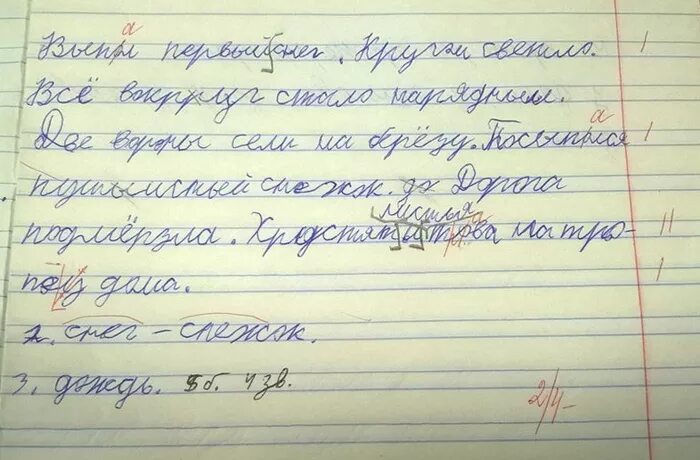 Выпал первый снег. Кругом светло.
Всё вокруг стало нарядным.
Две вороны сели на берёзу. Посыпался
пушистый снежок. Дорога
подмёрзла. Хрустят листья и трава на тро-
пе у дома.
2. снег - снежок.
3. дождь. 5б. 4 зв.
2/4-